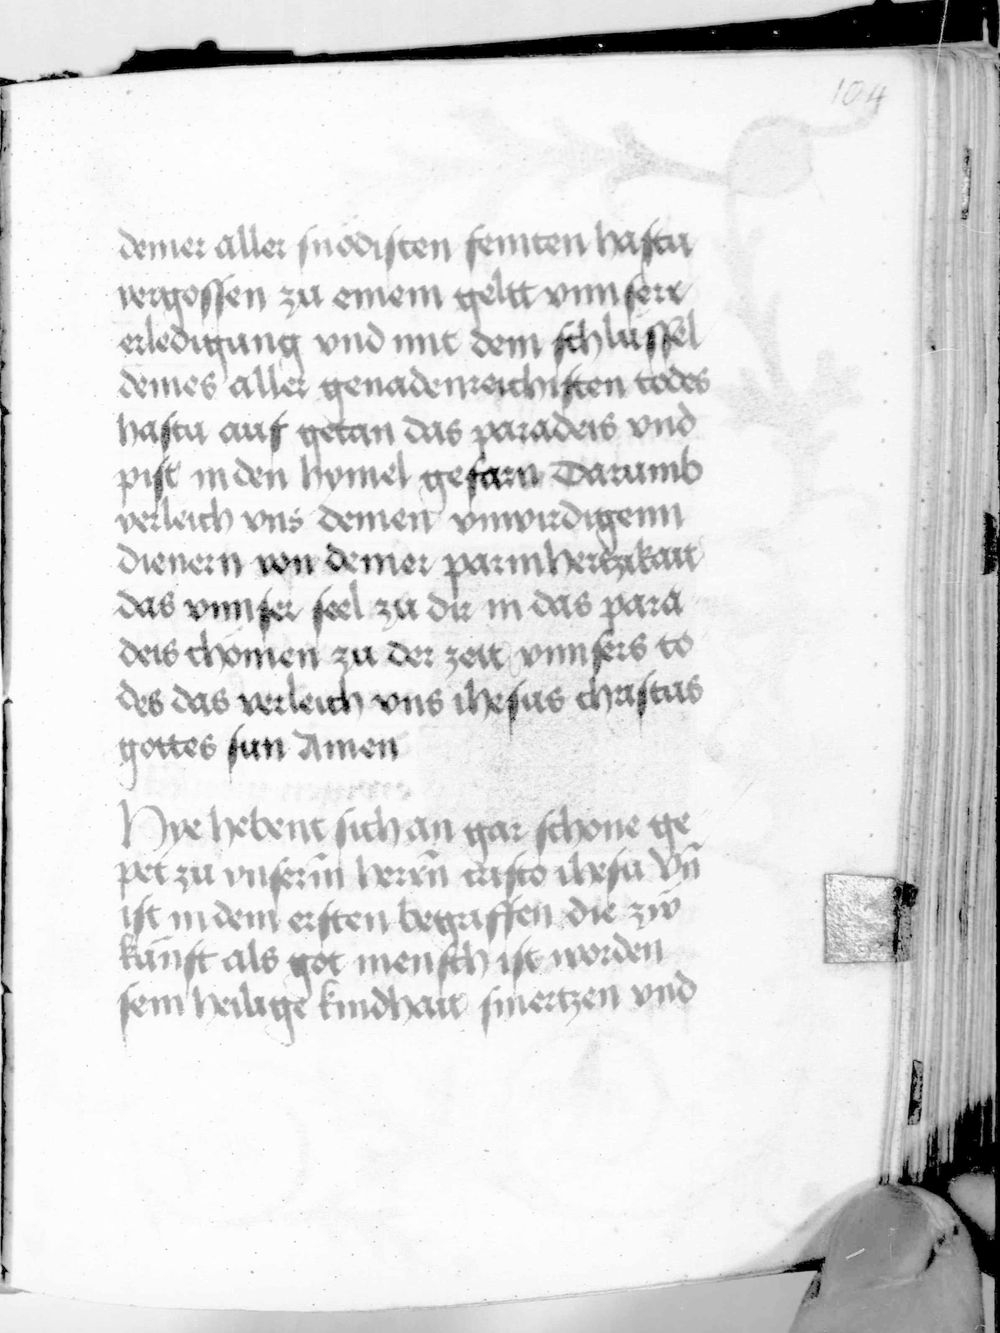 104
deiner aller snödisten seinten hastu
vergossen zu einem geltt vnnserr
erledigung vnd mit dem schlüssel
deines aller genadenreichisten todes
hastu auf getan das paradeis vnd
pist in den hymel gefarn Darumb
verleich vns deinen vnwirdigenn
dienern von deiner parmhertzikait
das vnnser seel zu dir in das para
deis chömen zu der zeit vnnsers to
des das verleich vns ihesus christus
gottes sun Amen
Hye hebent sich an gar schone ge
pet zu vnserm̄ herrn̄ cristo ihesu Vn̄
ist in dem ersten begriffen die zw̄
kan̄ft als got mensch ist worden
sein heilige kindhait smertzen vnd